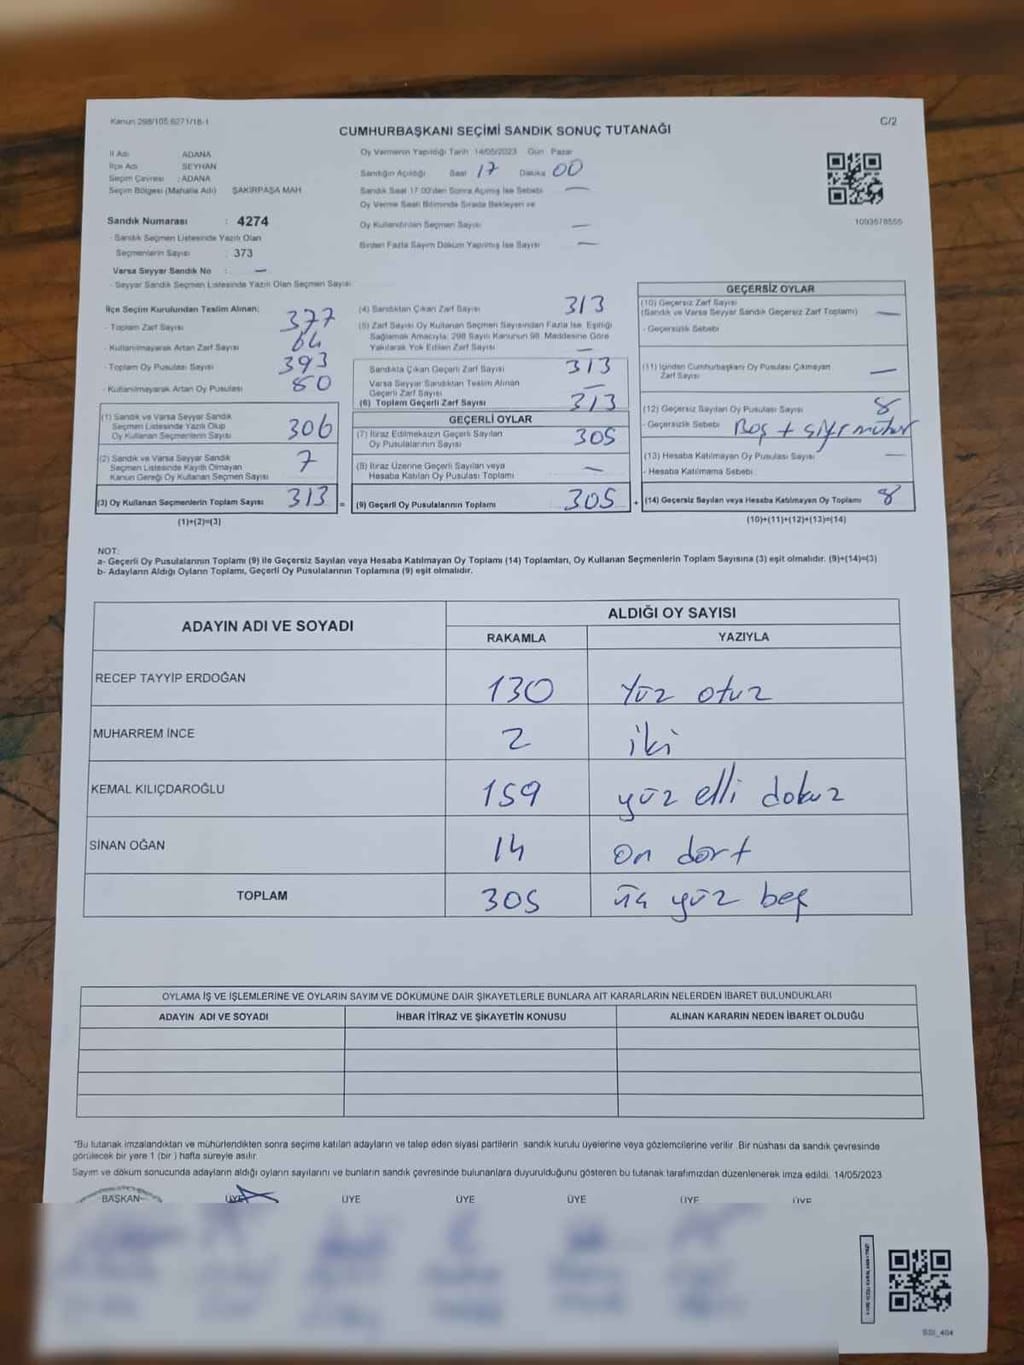 Kanun 298/105 6271/18-1
C/2
CUMHURBAŞKANI SEÇİMİ SANDIK SONUÇ TUTANAĞI
İl Adı ADANA
İlçe Adı SEYHAN
Seçim Çevresi : ADANA
Seçim Bölgesi (Mahalle Adı) ŞAKİRPAŞA MAH
Oy Vermenin Yapıldığı Tarih 14/05/2023 Gün Pazar
Sandığın Açıldığı Saat 17 Dakika 00
Sandık Saat 17 00'den Sonra Açılmış İse Sebebi —
Oy Verme Saati Bitiminde Sırada Bekleyen ve
Oy Kullandırılan Seçmen Sayısı —
Birden Fazla Sayım Döküm Yapılmış İse Sayısı —
1003678555
Sandık Numarası : 4274
- Sandık Seçmen Listesinde Yazılı Olan
Seçmenlerin Sayısı : 373
Varsa Seyyar Sandık No : —
- Seyyar Sandık Seçmen Listesinde Yazılı Olan Seçmen Sayısı
İlçe Seçim Kurulundan Teslim Alınan:
- Toplam Zarf Sayısı 377
- Kullanılmayarak Artan Zarf Sayısı 64
- Toplam Oy Pusulası Sayısı 393
- Kullanılmayarak Artan Oy Pusulası 80
(1) Sandık ve Varsa Seyyar Sandık
Seçmen Listesinde Yazılı Olup
Oy Kullanan Seçmenlerin Sayısı 306
(2) Sandık ve Varsa Seyyar Sandık
Seçmen Listesinde Kayıtlı Olmayan
Kanun Gereği Oy Kullanan Seçmen Sayısı 7
(3) Oy Kullanan Seçmenlerin Toplam Sayısı 313 =
(1)+(2)=(3)
(4) Sandıktan Çıkan Zarf Sayısı 313
(5) Zarf Sayısı Oy Kullanan Seçmen Sayısından Fazla İse, Eşitliği
Sağlamak Amacıyla; 298 Sayılı Kanunun 98. Maddesine Göre
Yakılarak Yok Edilen Zarf Sayısı —
Sandıkta Çıkan Geçerli Zarf Sayısı 313
Varsa Seyyar Sandıktan Teslim Alınan
Geçerli Zarf Sayısı —
(6) Toplam Geçerli Zarf Sayısı 313
GEÇERLİ OYLAR
(7) İtiraz Edilmeksizin Geçerli Sayılan
Oy Pusulalarının Sayısı 305
(8) İtiraz Üzerine Geçerli Sayılan veya
Hesaba Katılan Oy Pusulası Toplamı —
(9) Geçerli Oy Pusulalarının Toplamı 305 +
GEÇERSİZ OYLAR
(10) Geçersiz Zarf Sayısı
(Sandık ve Varsa Seyyar Sandık Geçersiz Zarf Toplamı) —
- Geçersizlik Sebebi
(11) İçinden Cumhurbaşkanı Oy Pusulası Çıkmayan
Zarf Sayısı —
(12) Geçersiz Sayılan Oy Pusulası Sayısı 8
- Geçersizlik Sebebi Boş + çift mühür
(13) Hesaba Katılmayan Oy Pusulası Sayısı —
- Hesaba Katılmama Sebebi
(14) Geçersiz Sayılan veya Hesaba Katılmayan Oy Toplamı 8
(10)+(11)+(12)+(13)=(14)
NOT:
a- Geçerli Oy Pusulalarının Toplamı (9) ile Geçersiz Sayılan veya Hesaba Katılmayan Oy Toplamı (14) Toplamları, Oy Kullanan Seçmenlerin Toplam Sayısına (3) eşit olmalıdır. (9)+(14)=(3)
b- Adayların Aldığı Oyların Toplamı, Geçerli Oy Pusulalarının Toplamına (9) eşit olmalıdır.
ADAYIN ADI VE SOYADI
ALDIĞI OY SAYISI
RAKAMLA YAZIYLA
RECEP TAYYİP ERDOĞAN 130 Yüz otuz
MUHARREM İNCE 2 iki
KEMAL KILIÇDAROĞLU 159 yüz elli dokuz
SİNAN OĞAN 14 on dört
TOPLAM 305 üç yüz beş
OYLAMA İŞ VE İŞLEMLERİNE VE OYLARIN SAYIM VE DÖKÜMÜNE DAİR ŞİKAYETLERLE BUNLARA AİT KARARLARIN NELERDEN İBARET BULUNDUKLARI
ADAYIN ADI VE SOYADI İHBAR İTİRAZ VE ŞİKAYETİN KONUSU ALINAN KARARIN NEDEN İBARET OLDUĞU
*Bu tutanak imzalandıktan ve mühürlendikten sonra seçime katılan adayların ve talep eden siyasi partilerin sandık kurulu üyelerine veya gözlemcilerine verilir. Bir nüshası da sandık çevresinde
görülecek bir yere 1 (bir) hafta süreyle asılır.
Sayım ve döküm sonucunda adayların aldığı oyların sayılarını ve bunların sandık çevresinde bulunanlara duyurulduğunu gösteren bu tutanak tarafımızdan düzenlenerek imza edildi. 14/05/2023
BAŞKAN ÜYE ÜYE ÜYE ÜYE ÜYE ÜYE
SSI_404